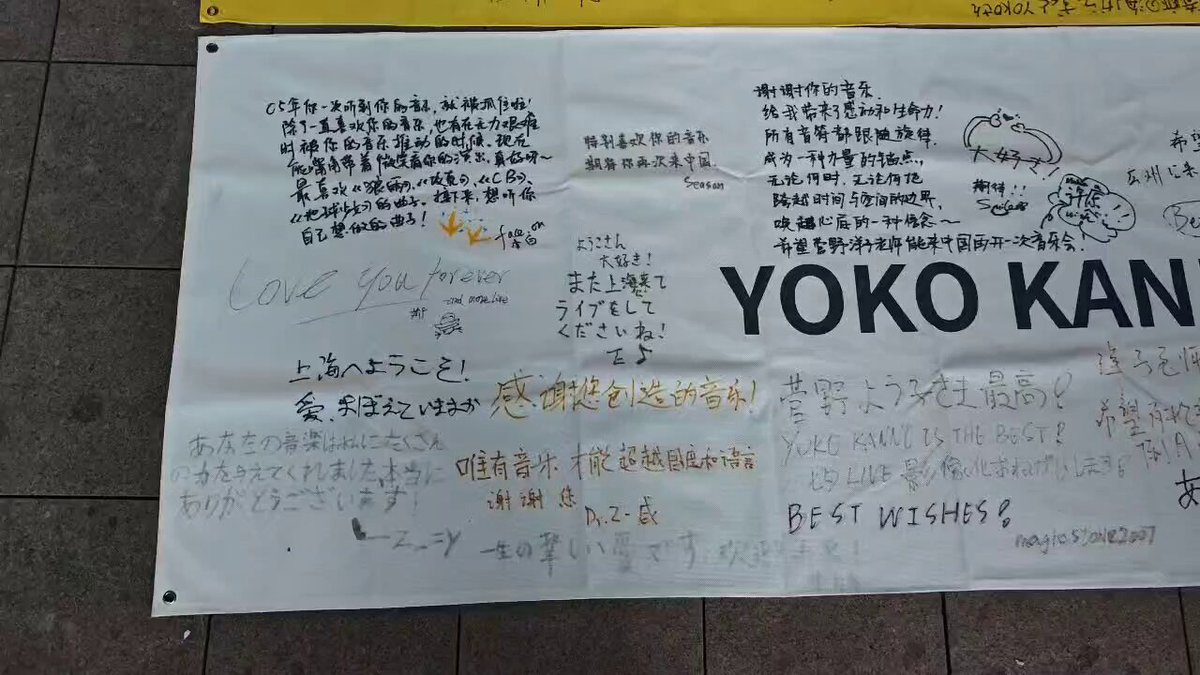 05年你一次听到你的音乐,就被抓住啦!
除了一直喜欢你的音乐,也有在无力艰难
时被你的音乐推动的时候。现在
能带着微笑看你的演出,真好呀~
最喜欢《狼雨》,《攻真》,《CB》,
的曲子。接下来,想听你
自己想做的曲子!
Love you forever
and more live
上海へようこそ!
愛、おぼえていますか
あなたの音楽はわたしにたくさん
の力を与えてくれました、本当に
ありがとうございます!
特别喜欢你的音乐
期待你再次来中国
Season
ようこさん
大好き!
また上海来て
ライブをして
くださいね!
感谢您创造的音乐!
唯有音乐 才能超越国度和语言
谢谢您
Dr.Z-感
一生の 美しい夢です
谢谢你的音乐.
给我带来了感动和生命力!
所有音符都跟随旋律.
成为一种力量的锚点,
无论何时,无论何地
跨越时间与空间的边界,
唤起心底的一种信念~
希望菅野洋子老师能来中国再开一次音乐会!
大好き!
期待!!
希望
広州に来
YOKO KAN
菅野ようこさま最高!
YOKO KANNO IS THE BEST!
LIVE 影像化おねがいします
BEST WISHES!
magicstone2007
希望有
あ